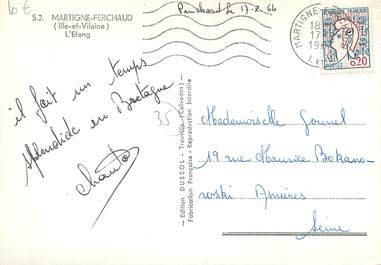 10 €
S.2. MARTIGNE-FERCHAUD
(Ille-et-Vilaine)
L'Etang
Ferchaud le 17-8-64
MARTIGNE
18
17
19
0,20
il fait un temps
splendide en Bretagne
35
— Edition DUSSOL - (Calvados) —
Fabrication Française - Reproduction Interdite
Mademoiselle
19 rue Maurice Bokano-
wski Asnières
Seine